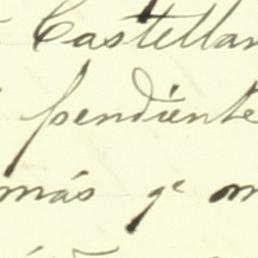 Castellan
pendiente
más qe m